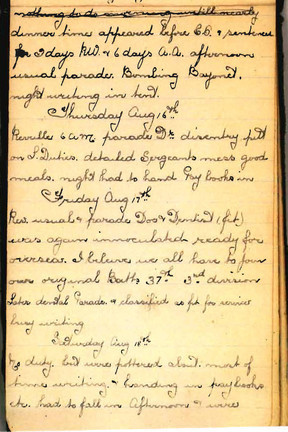 nothing to do in evening untill nearly
dinner time appeared before C.O. & sentence
for 3 days R.W. & 6 days A.A. afternoon
usual parades Bombing Bayonet.
night writing in tent.
Thursday Aug 16th
Reveille 6 am. parade Dr. disentry put
on L. Duties. detailed Sergeants mess good
meals. night had to hand Pay books in
Friday Aug 17th
Rev. usual & parade Doc & Dentist (fit)
was again innoculated ready for
overseas. I believe we all have to join
our original Batts 37th 3rd division
Later dental Parade. & classified as fit for service
busy writing
Saturday Aug 18th
duty. but were pottered about. most of
time writing. & handing in paybooks
etc. had to fall in Afternoon & were